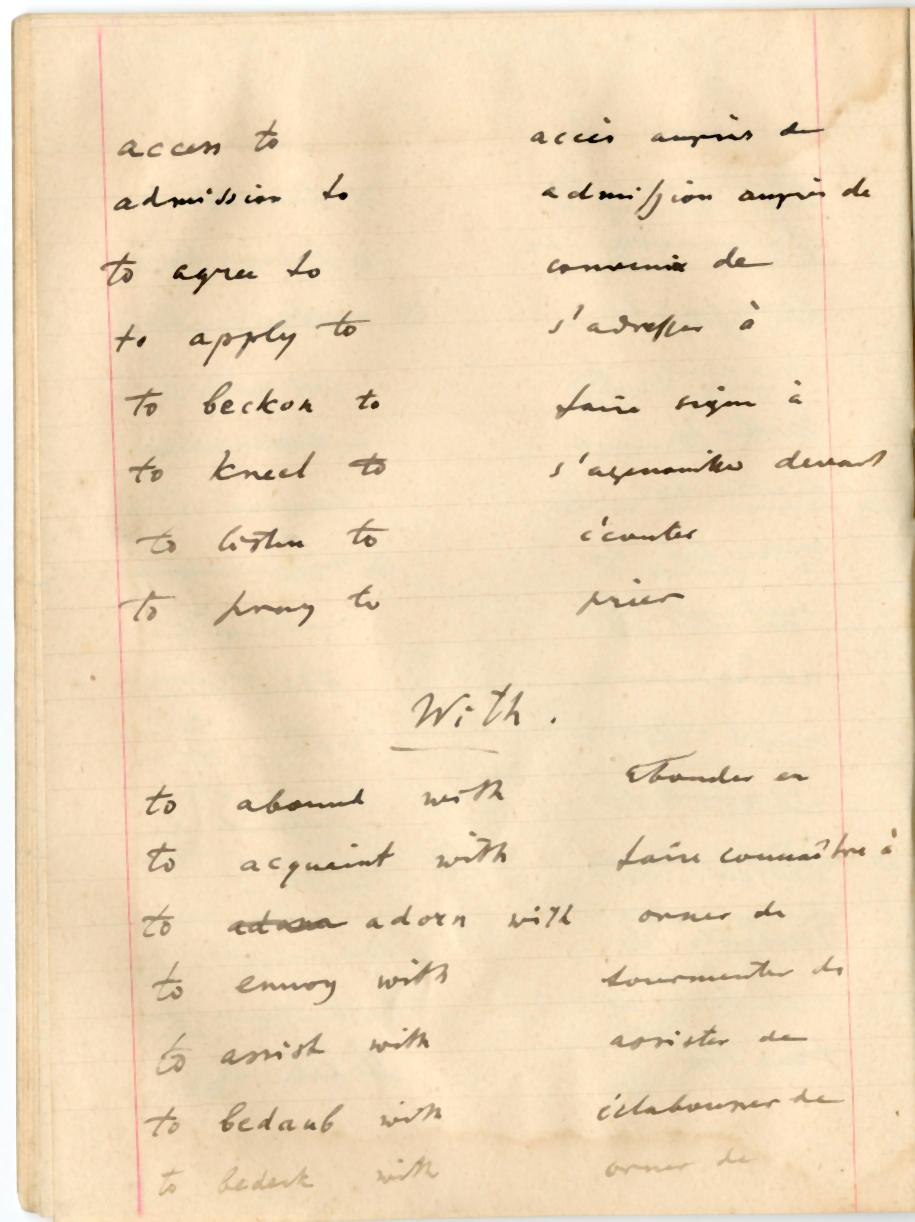 access to accès auprès de
admission to admission auprès de
to agree to convenir de
to apply to s'adresser à
to beckon to faire signe à
to kneel to s'agenouiller devant
to listen to écouter
to pray to prier
With.
to abound with abonder en
to acquaint with faire connaître à
to adorn with orner de
to ennoy with tourmenter de
to assist with assister de
to bedaub with éclabousser de
to bedeck with orner de